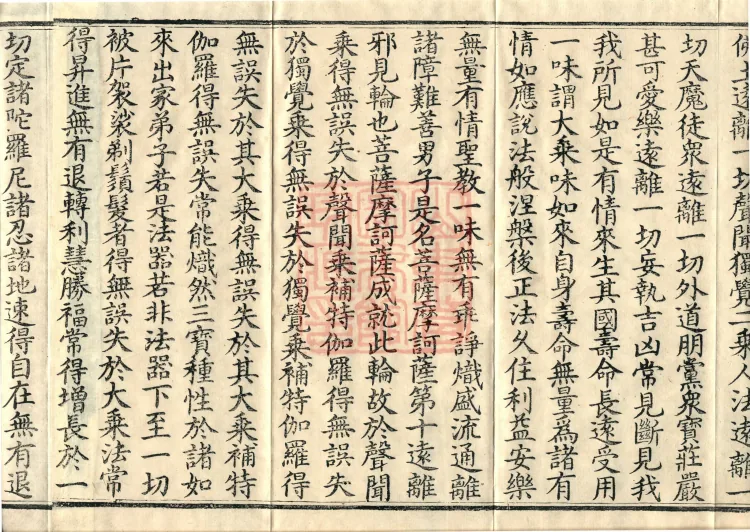 佛土遠離一切聲聞獨覺二乘人法遠離一
切天魔徒衆遠離一切外道朋黨衆寶莊嚴
甚可愛樂遠離一切妄執吉凶常見斷見我
我所見如是有情來生其國壽命長遠受用
一味謂大乘味如來自身壽命無量爲諸有
情如應說法般涅槃後正法久住利益安樂
無量有情聖教一味無有乖諍熾盛流通離
諸障難善男子是名菩薩摩訶薩第十遠離
邪見輪也菩薩摩訶薩成就此輪故於聲聞
乘得無誤失於聲聞乘補特伽羅得無誤失
於獨覺乘得無誤失於獨覺乘補特伽羅得
無誤失於其大乘得無誤失於其大乘補特
伽羅得無誤失常能熾然三寶種性於諸如
來出家弟子若是法器若非法器下至一切
被片袈裟剃鬚髮者得無誤失於大乘法常
得昇進無有退轉利慧勝福常得增長於一
切定諸陀羅尼諸忍諸地速得自在無有退